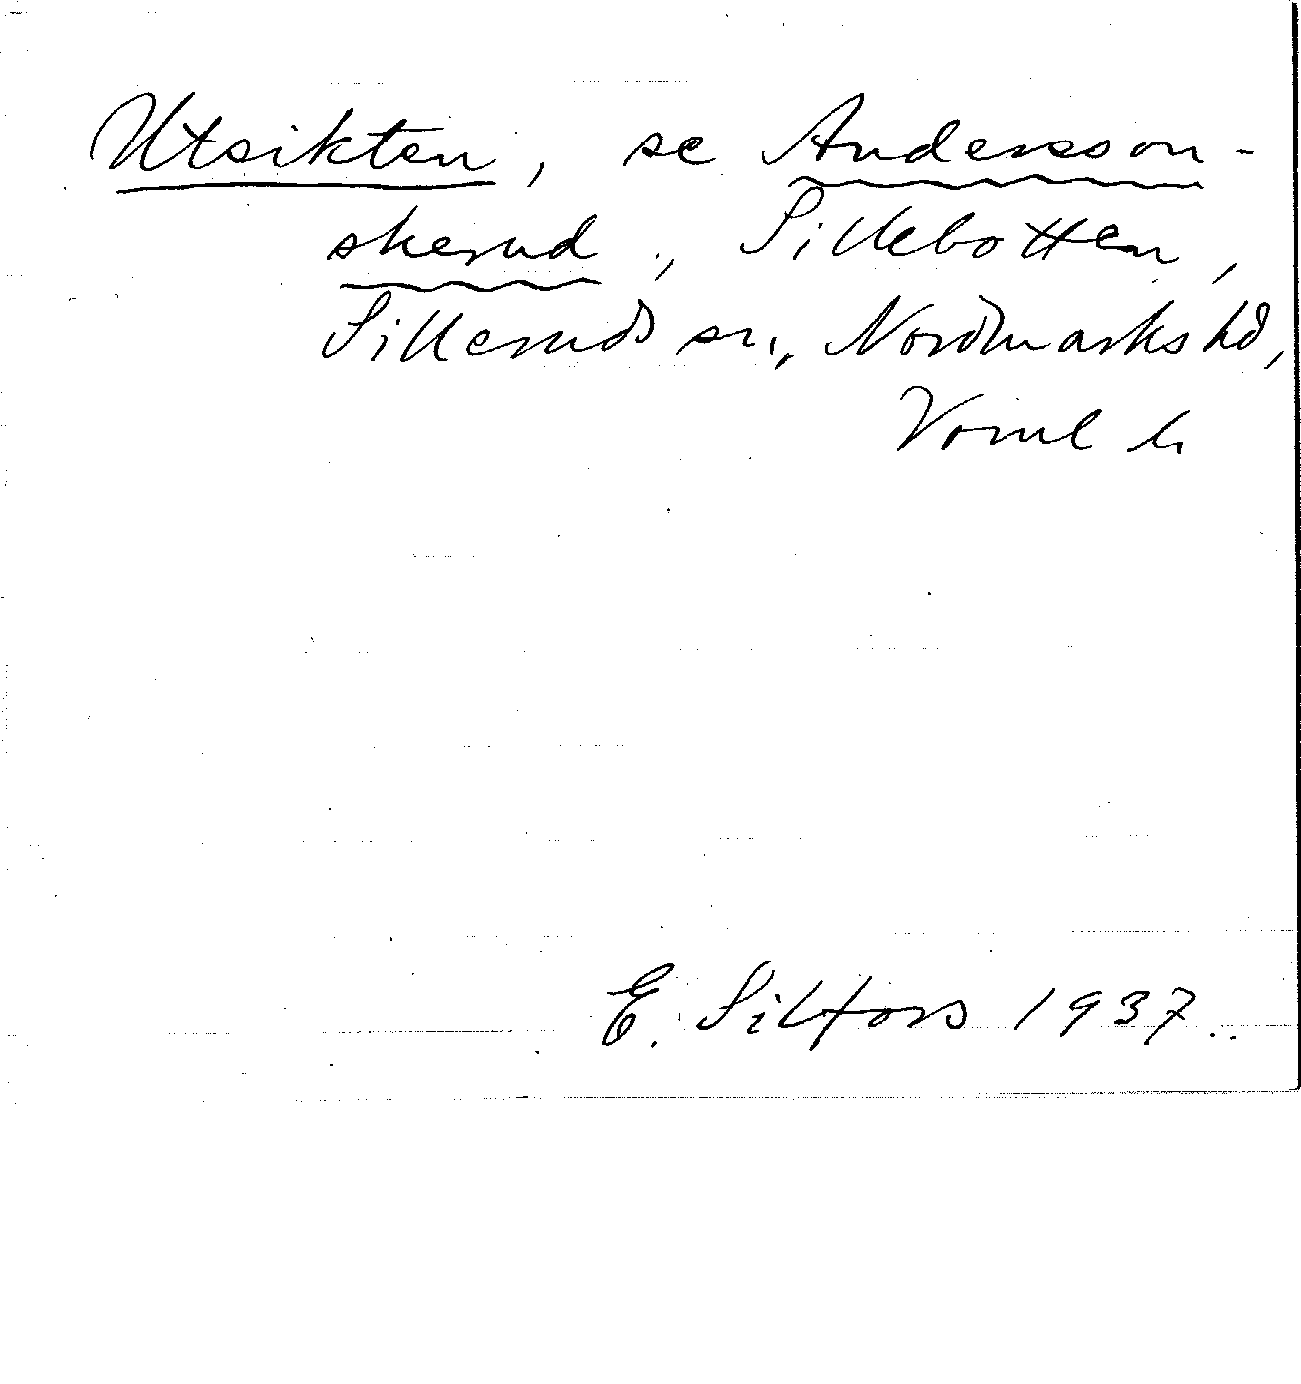 Utsikten, se Andersson-
skerud, Sillebotten,
Silleruds sn., Nordmarks hd,
Verml l.
E. Silfors 1937.